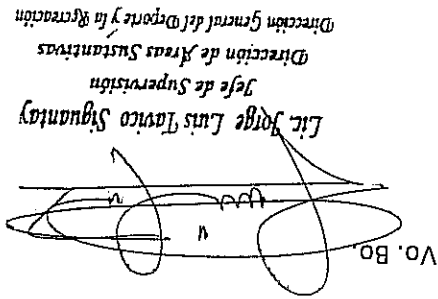 Vo. Bo.
Lic. Jorge Luis Tavico Siguantay
Jefe de Supervisión
Dirección de Areas Sustantivas
Dirección General del Deporte y la Recreación